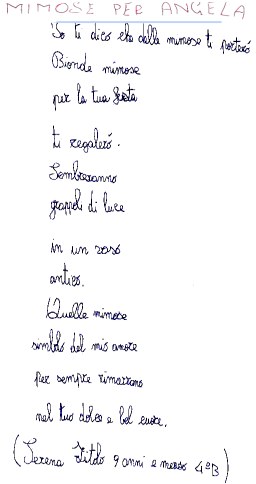 MIMOSE PER ANGELA
Io ti dico che delle mimose ti porterò
Bionde mimose
per la tua festa
ti regalerò.
Sembreranno
grappoli di luce
in un vaso
antico.
Quelle mimose
simbolo del mio amore
per sempre rimarrano
nel tuo dolce e bel cuore.
(Serena Fitdo 9 anni e mezzo 4ªB)